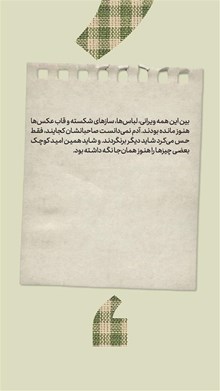 بین این همه ویرانی، لباس‌ها، سازهای شکسته و قاب عکس‌ها
هنوز مانده بودند. آدم نمی‌دانست صاحبانشان کجایند، فقط
حس می‌کرد شاید دیگر برنگردند. و شاید همین امید کوچک
بعضی چیزها را هنوز همان‌جا نگه داشته بود.